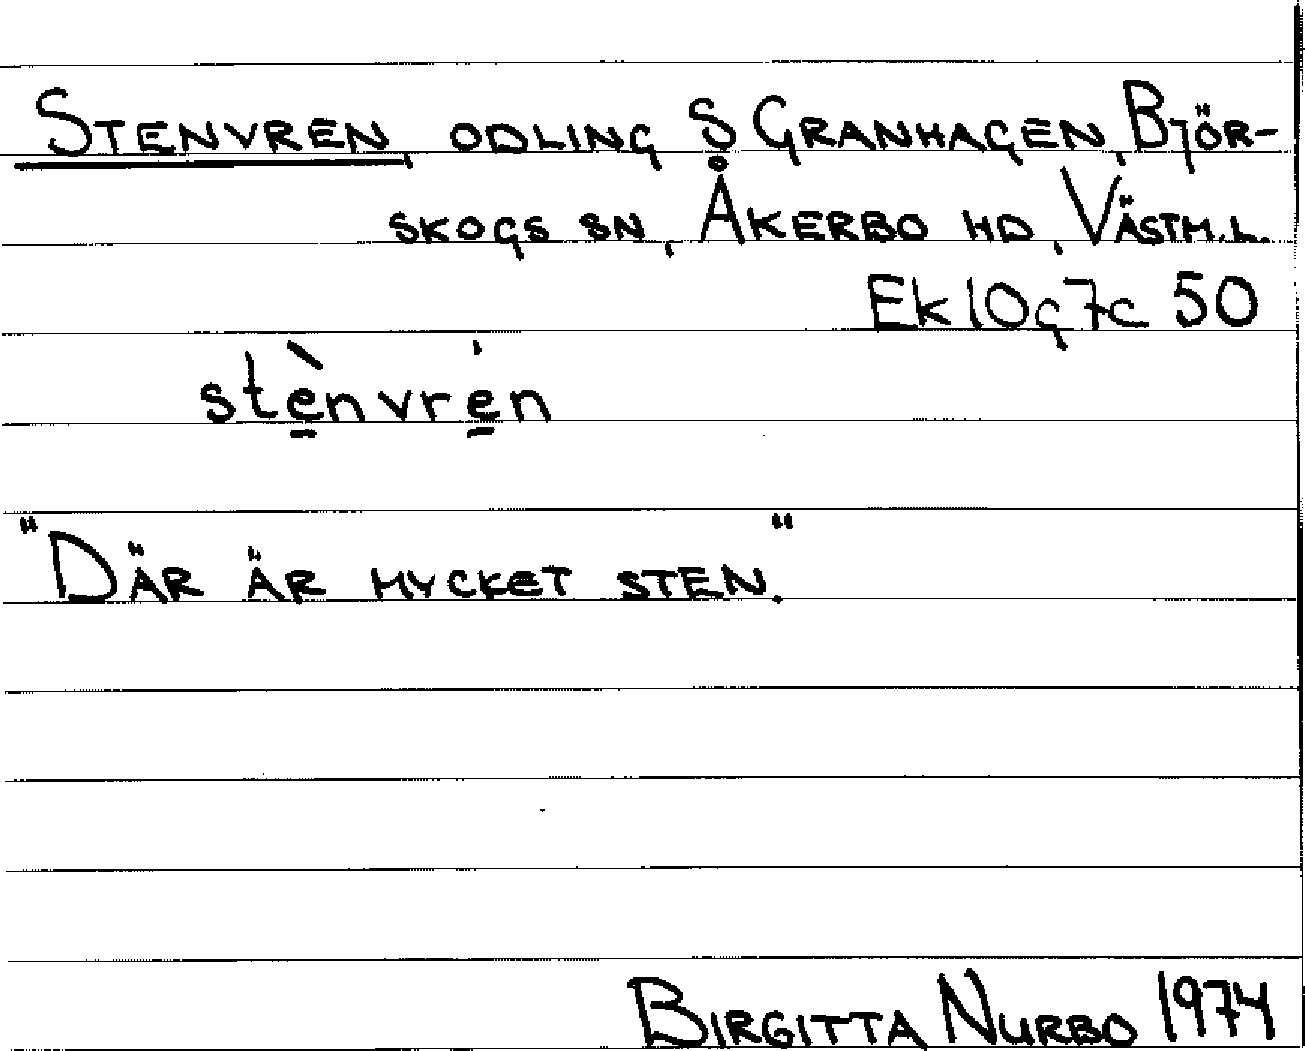 STENVREN, ODLING S GRANHAGEN, BJÖR-
SKOGS SN, ÅKERBO HD, VÄSTM.L.
Ek 10g7c 50
stènvrén
"DÄR ÄR MYCKET STEN."
BIRGITTA NURBO 1974